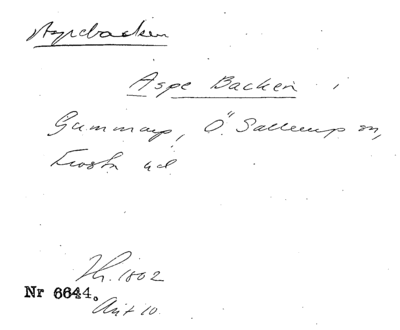 Aspebacken
Aspe Backen i
Gummarp, Ö. Sallerup sn,
Frosta hd
1802
Nr 6644.
Akt 10.